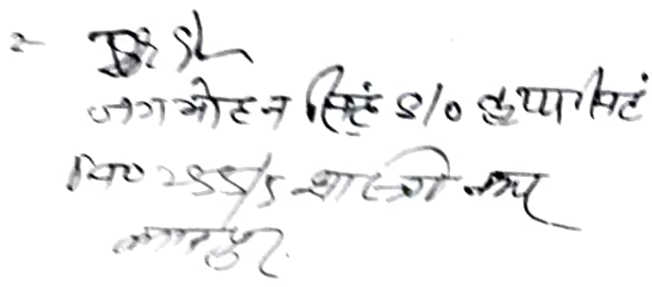 2-
जगमोहन सिंह S/O कृपा सिंह
नि० 255/5 शास्त्री नगर
कानपुर.